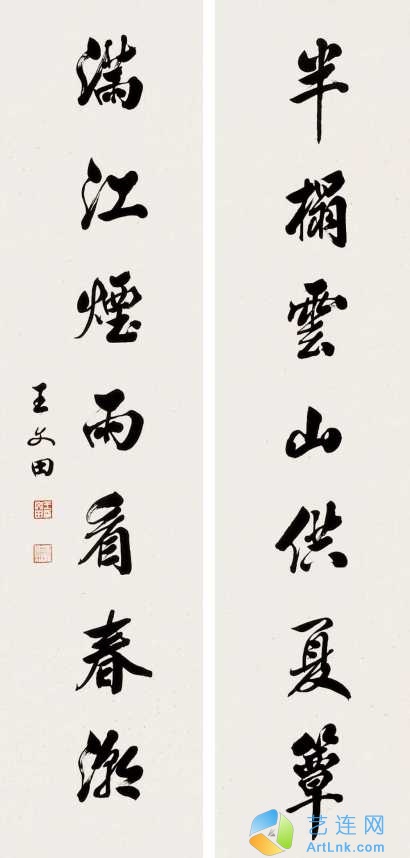 半榻雲山供夏簟
滿江煙雨看春潮
王文田
艺连网
ArtLnk.com